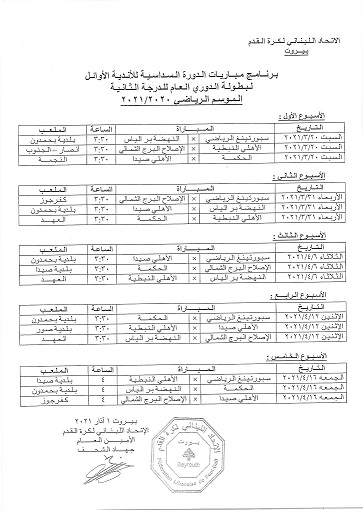 الاتحاد اللبناني لكرة القدم
بيروت
برنامج مباريات الدورة السداسية للأندية الأوائل
لبطولة الدوري العام للدرجة الثانية
الموسم الرياضي ٢٠٢١/٢٠٢٠
الأسبوع الأول :
التاريخ المباراة الساعة الملعب
السبت ٢٠٢١/٣/٢٠ سبورتينغ الرياضي × النهضة بر الياس ٣:٣٠ بلدية بحمدون
السبت ٢٠٢١/٣/٢٠ الأهلي النبطية × الإصلاح البرج الشمالي ٣:٣٠ أنصار - الجنوب
السبت ٢٠٢١/٣/٢٠ الحكمة × الأهلي صيدا ٣:٣٠ النجمة
الأسبوع الثاني :
التاريخ المباراة الساعة الملعب
الأربعاء ٢٠٢١/٣/٣١ سبورتينغ الرياضي × الإصلاح البرج الشمالي ٣:٣٠ كفرجوز
الأربعاء ٢٠٢١/٣/٣١ النهضة بر الياس × الأهلي صيدا ٣:٣٠ بلدية بحمدون
الأربعاء ٢٠٢١/٣/٣١ الأهلي النبطية × الحكمة ٣:٣٠ العهد
الأسبوع الثالث :
التاريخ المباراة الساعة الملعب
الثلاثاء ٢٠٢١/٤/٦ سبورتينغ الرياضي × الأهلي صيدا ٣:٣٠ بلدية بحمدون
الثلاثاء ٢٠٢١/٤/٦ الإصلاح البرج الشمالي × الحكمة ٣:٣٠ بلدية صيدا
الثلاثاء ٢٠٢١/٤/٦ النهضة بر الياس × الأهلي النبطية ٣:٣٠ العهد
الأسبوع الرابع :
التاريخ المباراة الساعة الملعب
الإثنين ٢٠٢١/٤/١٢ سبورتينغ الرياضي × الحكمة ٣:٣٠ بلدية بحمدون
الإثنين ٢٠٢١/٤/١٢ الأهلي صيدا × الأهلي النبطية ٣:٣٠ بلدية صور
الإثنين ٢٠٢١/٤/١٢ الإصلاح البرج الشمالي × النهضة بر الياس ٣:٣٠ العهد
الأسبوع الخامس :
التاريخ المباراة الساعة الملعب
الجمعة ٢٠٢١/٤/١٦ سبورتينغ الرياضي × الأهلي النبطية ٤ بلدية صيدا
الجمعة ٢٠٢١/٤/١٦ الحكمة × النهضة بر الياس ٤ بلدية بحمدون
الجمعة ٢٠٢١/٤/١٦ الأهلي صيدا × الإصلاح البرج الشمالي ٤ كفرجوز
بيروت ١ آذار ٢٠٢١
الاتحاد اللبناني لكرة القدم
الأمين العام
جهاد الشحف
الاتحاد اللبناني لكرة القدم
بيروت
Beyrouth
Fédération Libanaise de Football